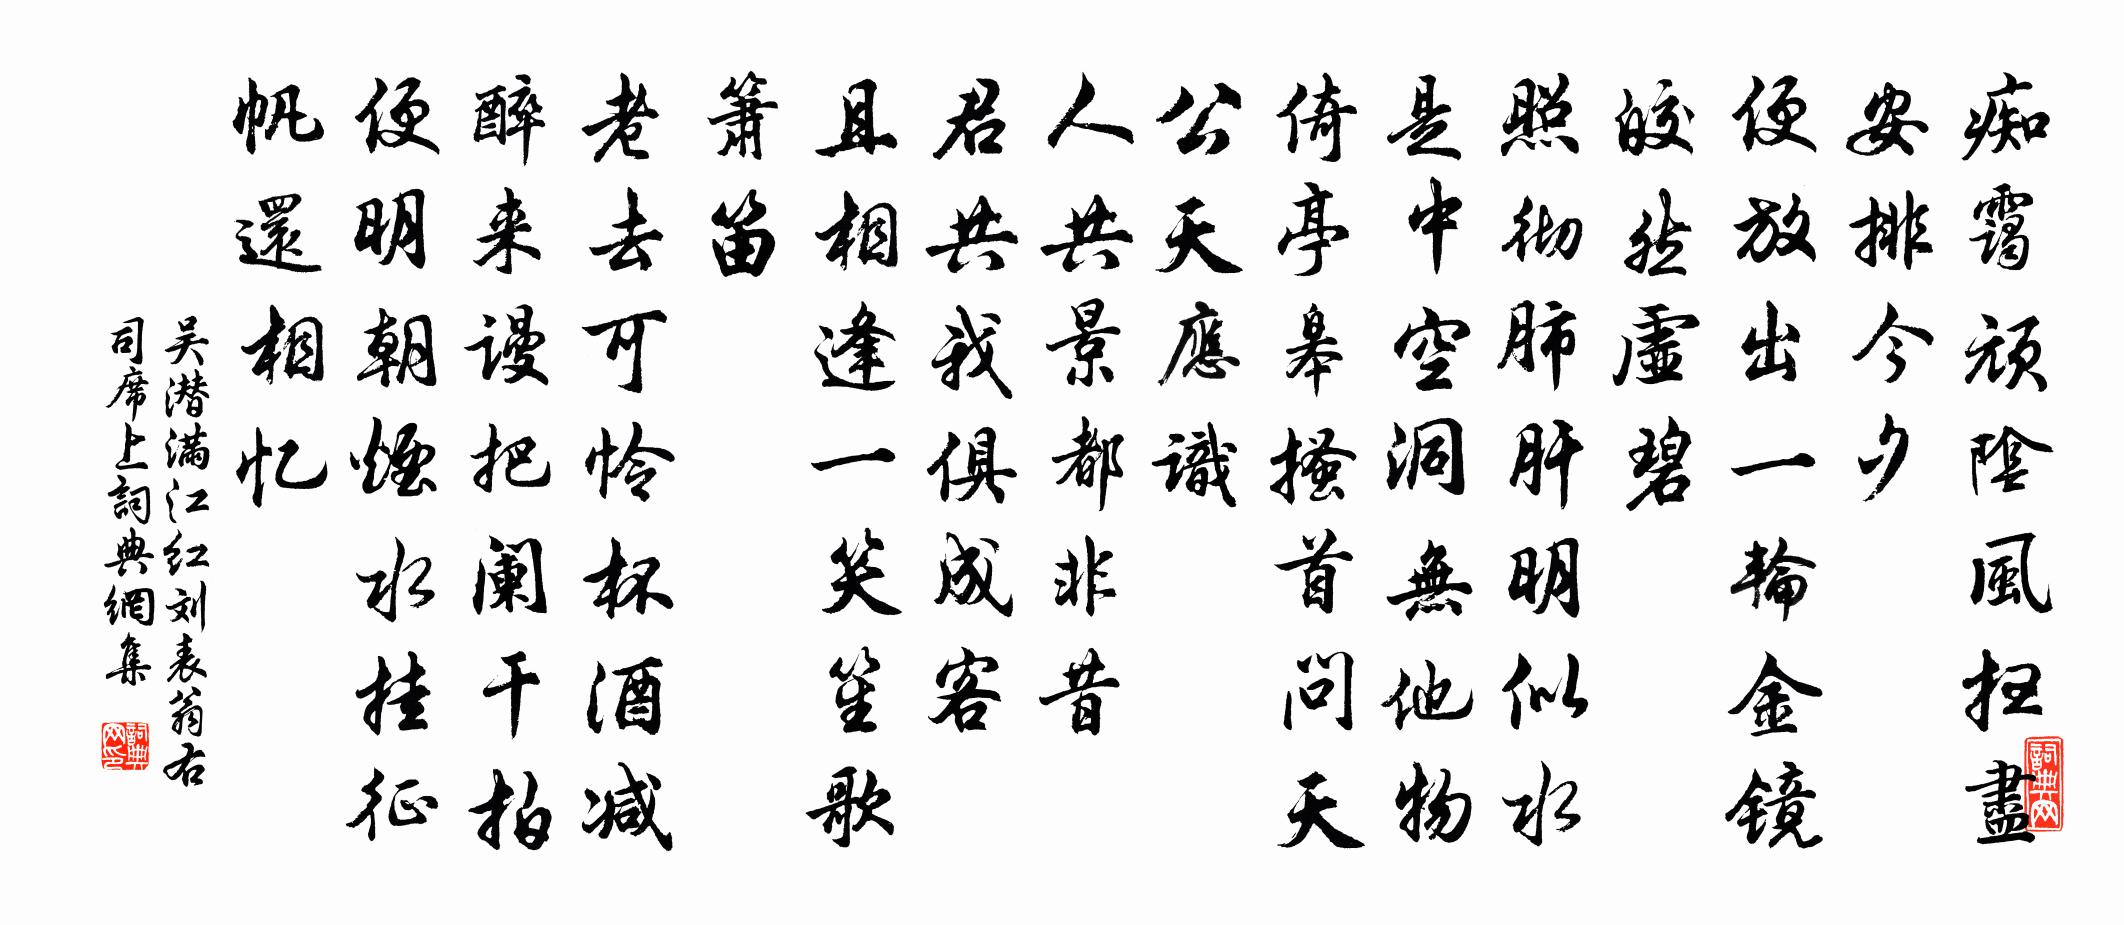 痴霭頑陰風扫盡
安排今夕
便放出一輪金镜
皎然虛碧
照彻肺肝明似水
是中空洞無他物
倚亭皋搔首问天
公天應識
人共景都非昔
君共我俱成客
且相逢一笑笙歌
箫笛
老去可怜杯酒减
醉来谩把阑干拍
便明朝煙水挂征
帆還相忆
吴潜满江红刘表翁右
司席上詞典網集
詞典网
詞典网印